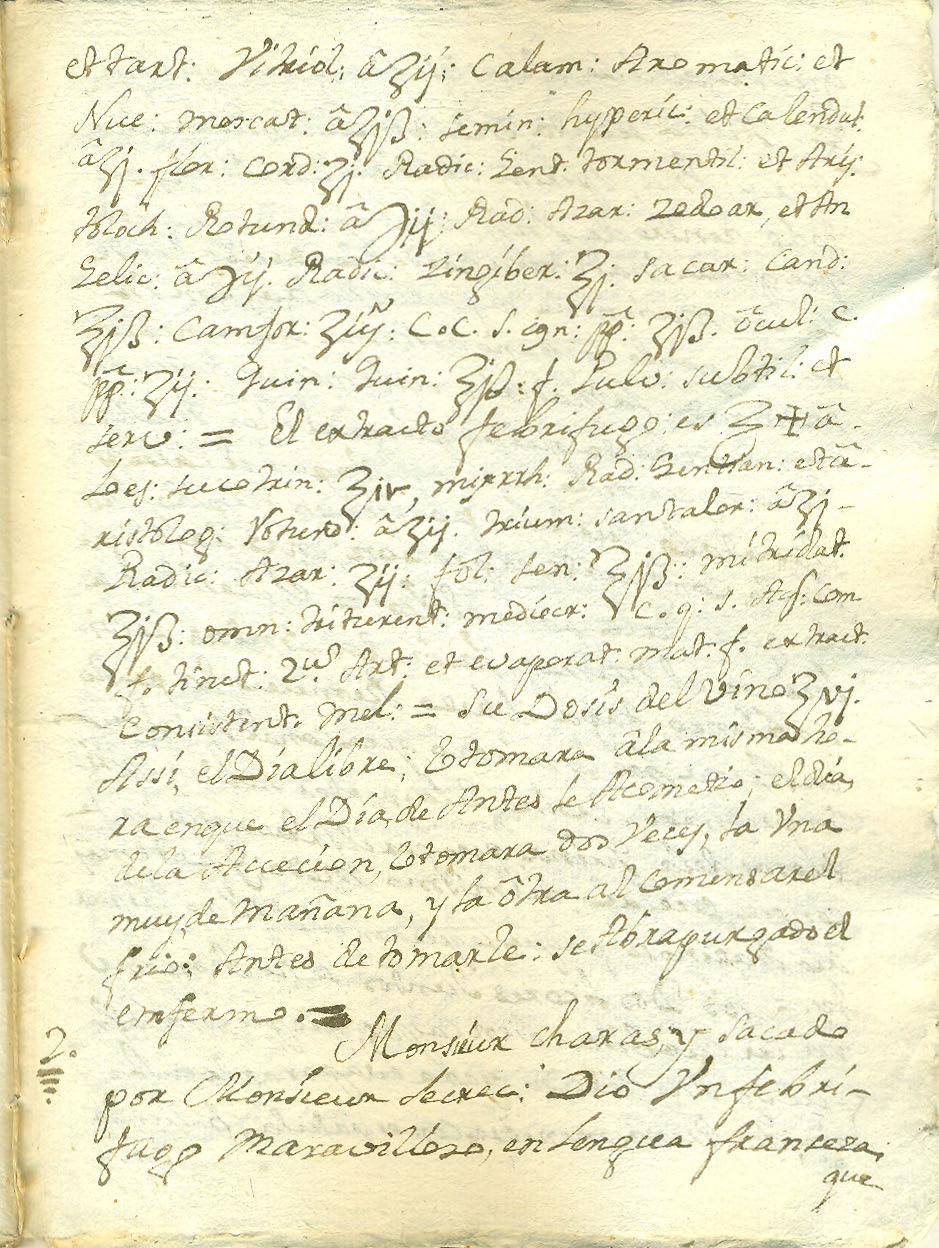 et tart: Vitriol: â ʒij: Calam: Aromatic: et
Nuc: moscat: â ʒjß: semin: hyperic: et Calendul.
â ʒj. flor: Cord: ʒj. Radic: Gent. tormentil: et Aris
toloch: Rotund: â ℈ij: Rad: Azar: zedoar, et An
gelic: â ℈ij. Radic: zingiber: ʒj. sacar: Cand:
ʒjß: Camfor: ʒiij: C.C. s. ign: pp̃: ʒjß. ôcul: C.
pp̃: ʒij. quin: quin: ʒjß: f. Pulv: subtil: et
serv: = El extracto febrifugo: es ʒ + â-
loes: sucotrin: ʒiv, mirrh: Rad: Gentian: et â-
ristolog: Rotund: â ʒij. trium: santalor: â ʒj-
Radic: Azar: ʒij: fol: sen: ʒjß: mitridat.
ʒjß: omn: triturent: mediocr: C. q: s. Aq: Com
f. tinct: 2.us Art: et evaporat: mat: f. extract.
Consistent: Mel: = Su Dosis del Vino ʒvj.
Assi, el Dia libre; lo tomara â la misma ho-
ra en que el Dia de Antes le Acometio; el dia
de la Accecion, lo tomara dos Veces, la Vna
muy de mañana, y la ôtra al Comensar el
frio: Antes de tomarle: se Abra purgado el
enfermo. =
2. Monsiur Charas, y sacado
por Monsieur secrec: Dio Vn febri-
fugo Maravilloso, en lengua franseza,
que